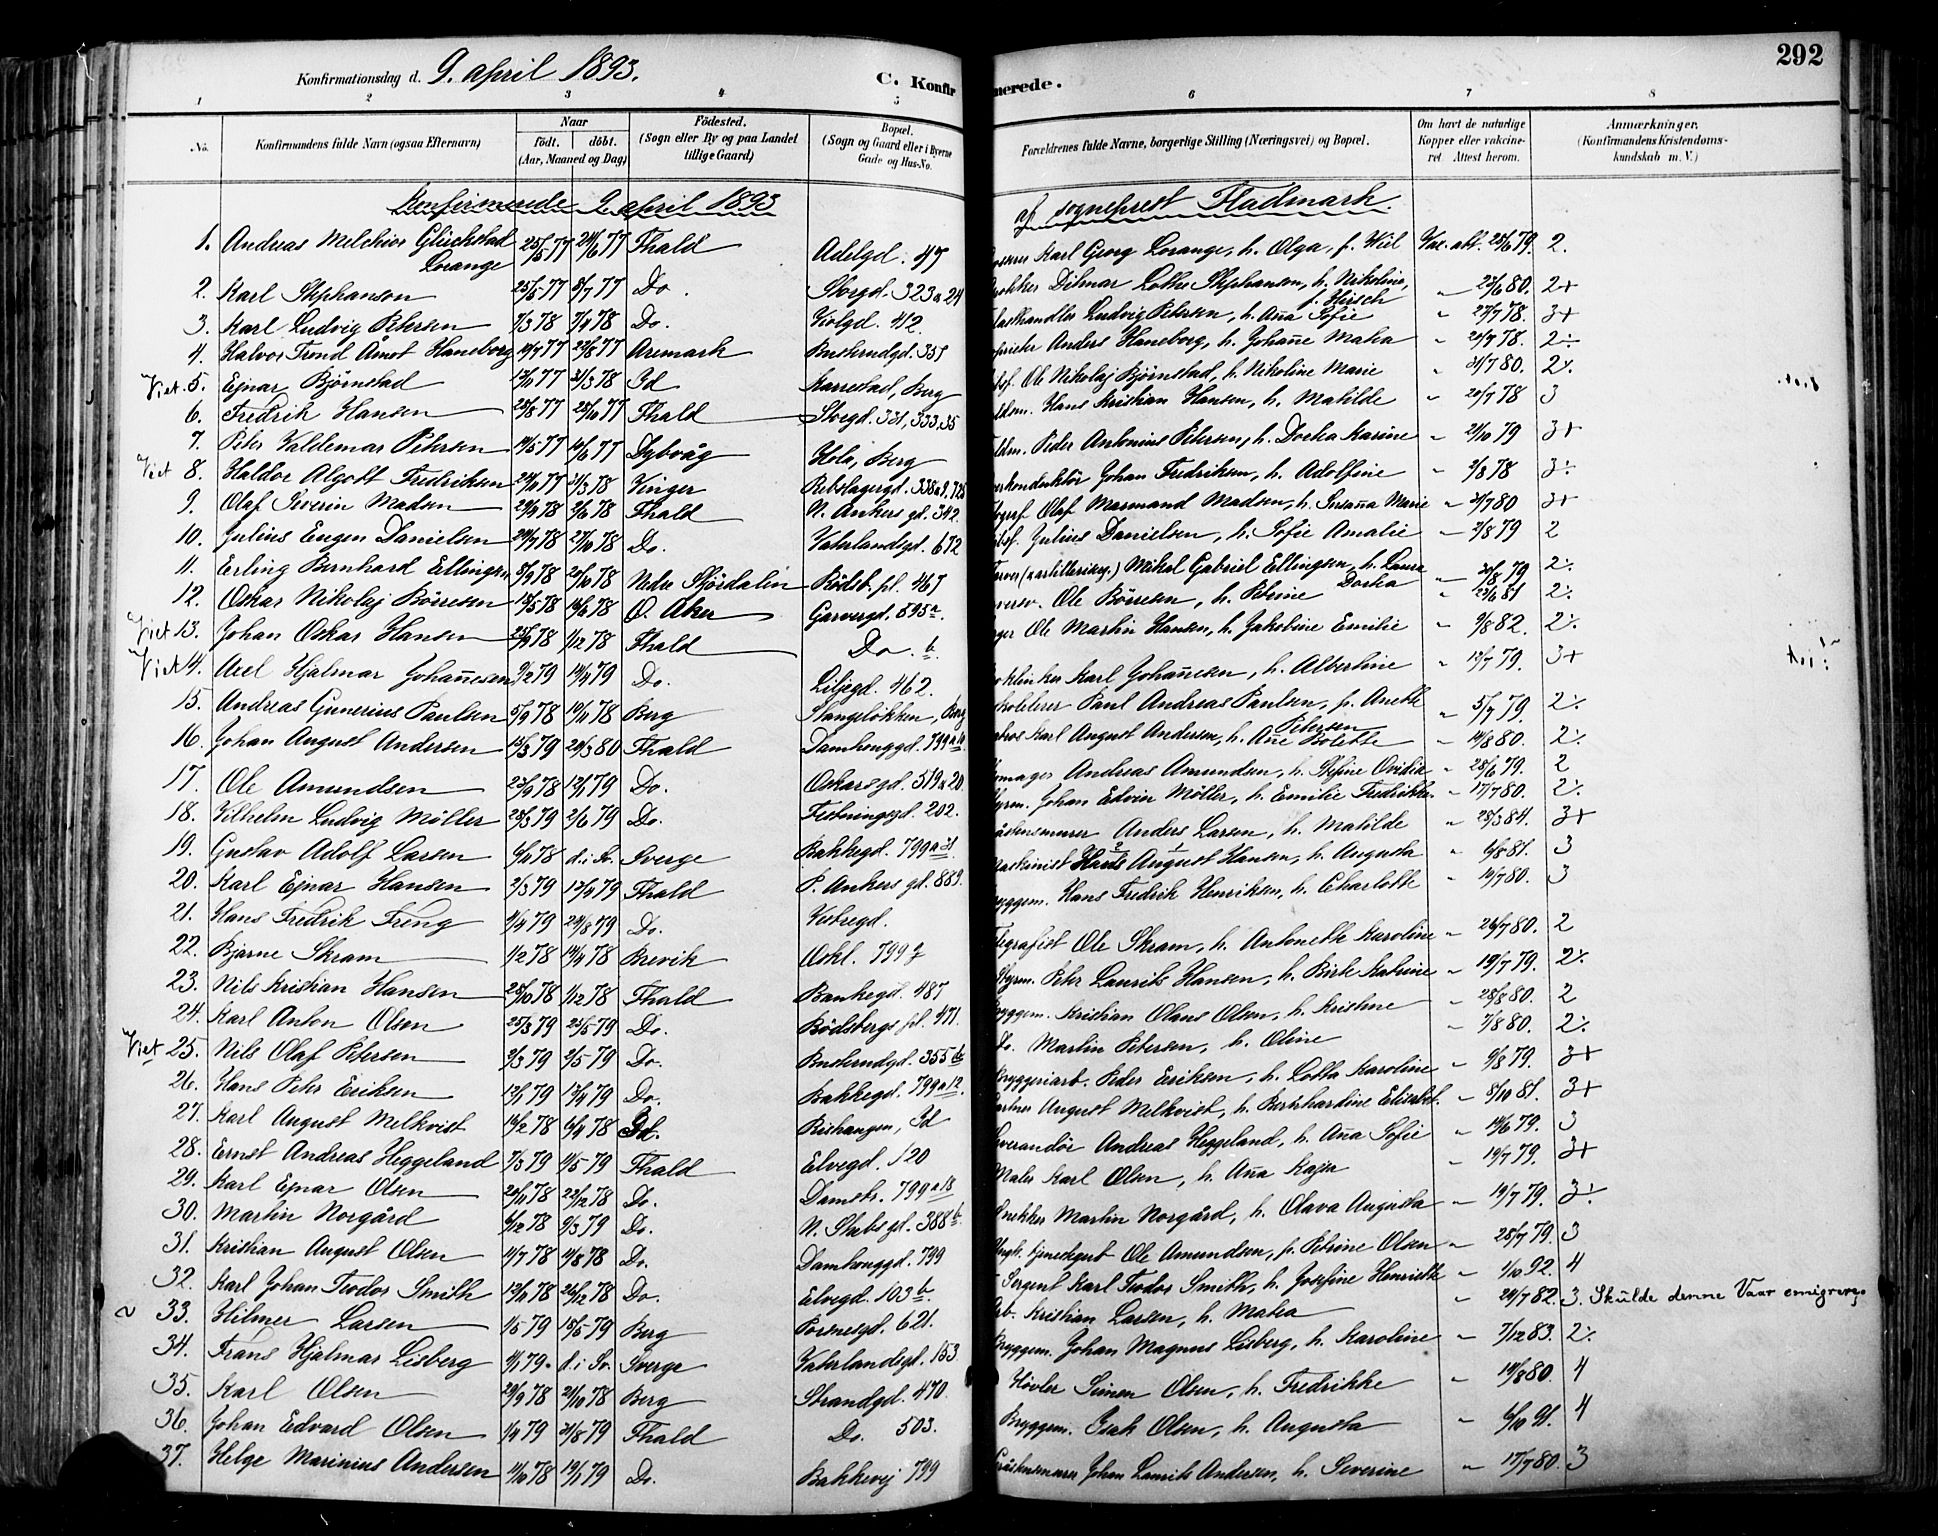 Konfirmationsdag d. 9. april 1893.
C. Konfir
merede.
292
1 2 3 4 5 6 7 8
No. Konfirmandens fulde Navn (ogsaa Efternavn) Naar födt. döbt. (Aar, Maaned og Dag) Födested. (Sogn eller By og paa Landet tillige Gaard) Bopæl. (Sogn og Gaard eller i Byerne Gade og Hus-No. Forældrenes fulde Navne, borgerlige Stilling (Næringsvei) og Bopæl. Om havt de naturlige Kopper eller vakcineret. Attest herom. Anmærkninger. (Konfirmandens Kristendomskundskab m. V.)
Konfirmerede 9 april 1893 af sogneprest Fladmark.
1. Andreas Melchior Glückstad Lorange 25/5 77 24/6 77 Fhald Adelgd. 47 Karl Georg Lorange, h. Olga, f. Wiel Vac. att. 25/6 79. 2.
2. Karl Stephanson 25/5 77 8/7 77 Do. Storgd. 323 a 24 Ditmar Lothe Stephansen, h. Nikoline, f. Hirsch " 23/6 80. 2+
3. Karl Ludvig Petersen 7/3 78 7/4 78 Do. Violgd. 412. Ludvig Petersen, h. Aña Sofie " 27/7 78. 3+
4. Halvor Trond Åmot Haneborg 19/7 77 22/8 77 Aremark Buskrudgd. 357 Anders Haneborg, h. Johañe Malva " 24/7 78. 2÷
Viet 5. Ejnar Björnstad 12/10 77 31/3 78 Id Karrestad, Berg Ole Nikolaj Björnstad, h. Nikoline Marie " 21/7 80. 2÷
6. Fredrik Hansen 25/8 77 28/10 77 Fhald Storgd. 331, 333, 35 Hans Kristian Hansen, h. Matilde " 20/7 78 3
7. Peter Valdemar Petersen 19/5 77 10/6 77 Dybvåg Hola, Berg Peder Antonius Petersen, h. Dorthea Karine " 21/10 79 3+
Viet 8. Haldor Algott Fredriksen 24/11 77 31/3 78 Vinger Rebslagergd. 338 a 9. 725 Johan Fredriksen, h. Adolfine " 2/8 78 3÷
9. Olaf Severin Madsen 29/4 78 2/6 78 Fhald N. Ankers gd. 342. Olaf Marmand Madsen, h. Susaña Marie " 21/7 80 3+
10. Julius Eugen Danielsen 24/7 78 27/10 78 Do. Vaterlandsgd. 672 Julius Danielsen, h. Sofie Amalie " 2/8 79 2
11. Erling Bernhard Ellingsen 8/9 78 20/10 78 Nedre Stjördalen Bödsb. pl. 467 Mikal Gabriel Ellingsen, h. Laura Dorthea " 20/8 79 2÷
12. Oskar Nikolaj Börresen 18/5 78 16/6 78 Ö. Aker Garvergd. 595 a. Ole Börresen, h. Petrine " 23/6 81 2÷
Viet 13. Johan Oskar Hansen 25/9 78 1/12 78 Fhald Do. b. Ole Martin Hansen, h. Jakobine Emilie " 9/8 82. 2÷
Viet 14. Axel Hjalmar Johañesen 9/2 79 14/4 79 Do. Liljegd. 462. Karl Johañesen, h. Albertine " 12/7 79. 3+
15. Andreas Gunerius Paulsen 5/9 78 19/11 78 Berg Stangelökken, Berg Paul Andreas Paulsen, f. Anette Petersen " 5/7 79. 2÷
16. Johan August Andersen 15/3 79 29/3 80 Fhald Damhenggd. 799 a 10 Karl August Andersen, h. Añe Bolette " 14/8 80. 2÷
17. Ole Amundsen 23/6 78 12/1 79 Do. Oskarsgd. 519 a 20. Andreas Amundsen, h. Stefine Ovidia " 28/6 79. 2
18. Vilhelm Ludvig Möller 28/3 79 2/6 79 Do. Festningsgd. 202. Johan Edvin Möller, h. Emilie Fredrikke " 17/7 80. 2÷
19. Gustav Adolf Larsen 6/11 78 d. i Sv. Sverge Bakkegd. 799 a 31. Anders Larsen, h. Matilde " 28/3 84. 3+
20. Karl Ejnar Hansen 2/3 79 13/4 79 Fhald P. Ankers gd. 889. Hans August Hansen, h. Augusta " 6/8 81. 3
21. Hans Fredrik Freng 4/4 79 24/8 79 Do. Vestregd. Hans Fredrik Henriksen, h. Charlotte " 14/7 80. 3
22. Bjarne Skram 1/2 78 14/4 78 Brevik Oskl. 799 Ole Skram, h. Antonette Karoline " 26/7 80. 2
23. Nils Kristian Hansen 28/10 78 1/12 78 Fhald Bankegd. 487 Peter Laurits Hansen, h. Birte Katrine " 19/7 79. 2÷
24. Karl Anton Olsen 25/3 79 23/5 79 Do. Bödsbergs pl. 471. Kristian Olaus Olsen, h. Kristine " 28/8 80. 2
Viet 25. Nils Olaf Petersen 2/3 79 2/5 79 Do. Buskrudgd. 355 b Do. Martin Petersen, h. Oline " 7/8 80. 2÷
26. Hans Peter Eriksen 12/1 79 13/4 79 Do. Bakkegd. 799 a 12. Bryggeriarb. Peder Eriksen, h. Lotta Karoline " 9/8 79. 3+
27. Karl August Melkvist 16/2 78 6/4 78 Id. Rishaugen, Id August Melkvist, h. Bernhardine Elisabet. " 8/10 81. 3+
28. Ernst Andreas Heggeland 7/3 79 4/5 79 Fhald Elvegd. 120 Andreas Heggeland, h. Aña Sofie " 14/6 79. 3
29. Karl Ejnar Olsen 20/11 78 22/12 78 Do. Damstr. 799 a 18 Maler Karl Olsen, h. Aña Kaja " 19/7 79. 3+
30. Martin Norgård 6/12 78 9/3 79 Do. N. Stabsgd. 388 b. Snekker Martin Norgård, h. Olava Augusta " 19/7 79. 3÷
31. Kristian August Olsen 11/7 78 11/8 78 Do. Damhenggd. 799 Ole Amundsen, f. Petrine Olsen " 28/7 79. 3
32. Karl Johan Teodor Smith 13/11 78 26/12 78 Do. Elvegd. 103 b. Sergent Karl Teodor Smith, h. Josefine Henriette " 1/10 92. 4
~ 33. Hilmer Larsen 1/5 79 18/5 79 Berg Porsnesgd. 621. Arb. Kristian Larsen, h. Malva " 24/7 82. 3. Skulde denne Vaar emigrere.
34. Frans Hjalmar Lisberg 4/1 79. d. i Sv. Sverge Vaterlandsgd. 153 Bryggem. Johan Magnus Lisberg, h. Karoline " 7/12 83. 2÷
35. Karl Olsen 29/9 78 21/10 78 Berg Strandgd. 470 Hövler Simen Olsen, h. Fredrikke " 19/8 80. 4
36. Johan Edvard Olsen 1/4 79 31/8 79 Fhald Do. 503. Bryggem. Isak Olsen, h. Augusta " 6/10 91. 4
37. Helge Marinius Andersen 11/10 78 19/1 79 Do. Bakkevej 799 Gråstensmurer Johan Laurits Andersen, h. Severine " 17/7 80. 3